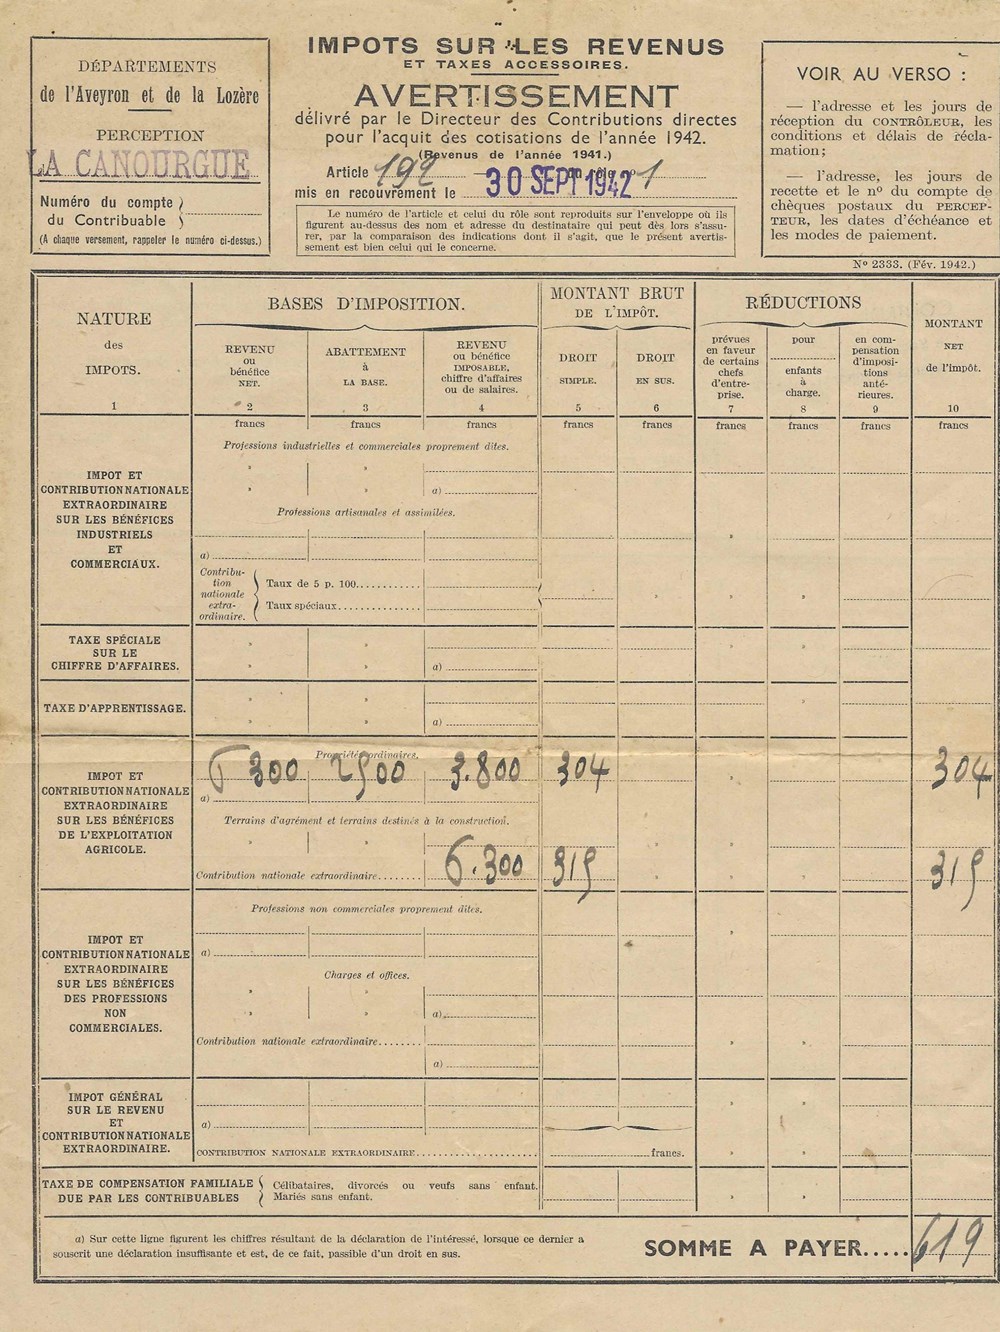 DÉPARTEMENTS
de l'Aveyron et de la Lozère
PERCEPTION
LA CANOURGUE
Numéro du compte
du Contribuable
(A chaque versement, rappeler le numéro ci-dessus.)
IMPOTS SUR LES REVENUS
ET TAXES ACCESSOIRES.
AVERTISSEMENT
délivré par le Directeur des Contributions directes
pour l'acquit des cotisations de l'année 1942.
(Revenus de l'année 1941.)
Article 192 du rôle n° 1
mis en recouvrement le 30 SEPT 1942
Le numéro de l'article et celui du rôle sont reproduits sur l'enveloppe où ils
figurent au-dessus des nom et adresse du destinataire qui peut dès lors s'assu-
rer, par la comparaison des indications dont il s'agit, que le présent avertis-
sement est bien celui qui le concerne.
VOIR AU VERSO :
— l'adresse et les jours de
réception du CONTRÔLEUR, les
conditions et délais de récla-
mation;
— l'adresse, les jours de
recette et le nº du compte de
chèques postaux du PERCEP-
TEUR, les dates d'échéance et
les modes de paiement.
Nº 2333. (Fév. 1942.)
NATURE
des
IMPOTS.
1
BASES D'IMPOSITION.
REVENU
ou
bénéfice
NET.
2
francs
ABATTEMENT
à
LA BASE.
3
francs
REVENU
ou bénéfice
IMPOSABLE,
chiffre d'affaires
ou de salaires.
4
francs
MONTANT BRUT
DE L'IMPÔT.
DROIT
SIMPLE.
5
francs
DROIT
EN SUS.
6
francs
RÉDUCTIONS
prévues
en faveur
de certains
chefs
d'entre-
prise.
7
francs
pour
enfants
à
charge.
8
francs
en com-
pensation
d'imposi-
tions
anté-
rieures.
9
francs
MONTANT
NET
de l'impôt.
10
francs
IMPOT ET
CONTRIBUTION NATIONALE
EXTRAORDINAIRE
SUR LES BÉNÉFICES
INDUSTRIELS
ET
COMMERCIAUX.
Professions industrielles et commerciales proprement dites.
a)
Professions artisanales et assimilées.
a)
Contribu-
tion
nationale
extra-
ordinaire.
Taux de 5 p. 100
Taux spéciaux
TAXE SPÉCIALE
SUR LE
CHIFFRE D'AFFAIRES.
a)
TAXE D'APPRENTISSAGE.
a)
IMPOT ET
CONTRIBUTION NATIONALE
EXTRAORDINAIRE
SUR LES BÉNÉFICES
DE L'EXPLOITATION
AGRICOLE.
Propriétés ordinaires.
6 300 2500 3.800 304 304
a)
Terrains d'agrément et terrains destinés à la construction.
Contribution nationale extraordinaire 6.300 315 315
IMPOT ET
CONTRIBUTION NATIONALE
EXTRAORDINAIRE
SUR LES BÉNÉFICES
DES PROFESSIONS
NON
COMMERCIALES.
Professions non commerciales proprement dites.
a)
Charges et offices.
a)
Contribution nationale extraordinaire
a)
IMPOT GÉNÉRAL
SUR LE REVENU
ET
CONTRIBUTION NATIONALE
EXTRAORDINAIRE.
a)
CONTRIBUTION NATIONALE EXTRAORDINAIRE francs.
TAXE DE COMPENSATION FAMILIALE
DUE PAR LES CONTRIBUABLES
Célibataires, divorcés ou veufs sans enfant.
Mariés sans enfant.
a) Sur cette ligne figurent les chiffres résultant de la déclaration de l'intéressé, lorsque ce dernier a
souscrit une déclaration insuffisante et est, de ce fait, passible d'un droit en sus.
SOMME A PAYER..... 619